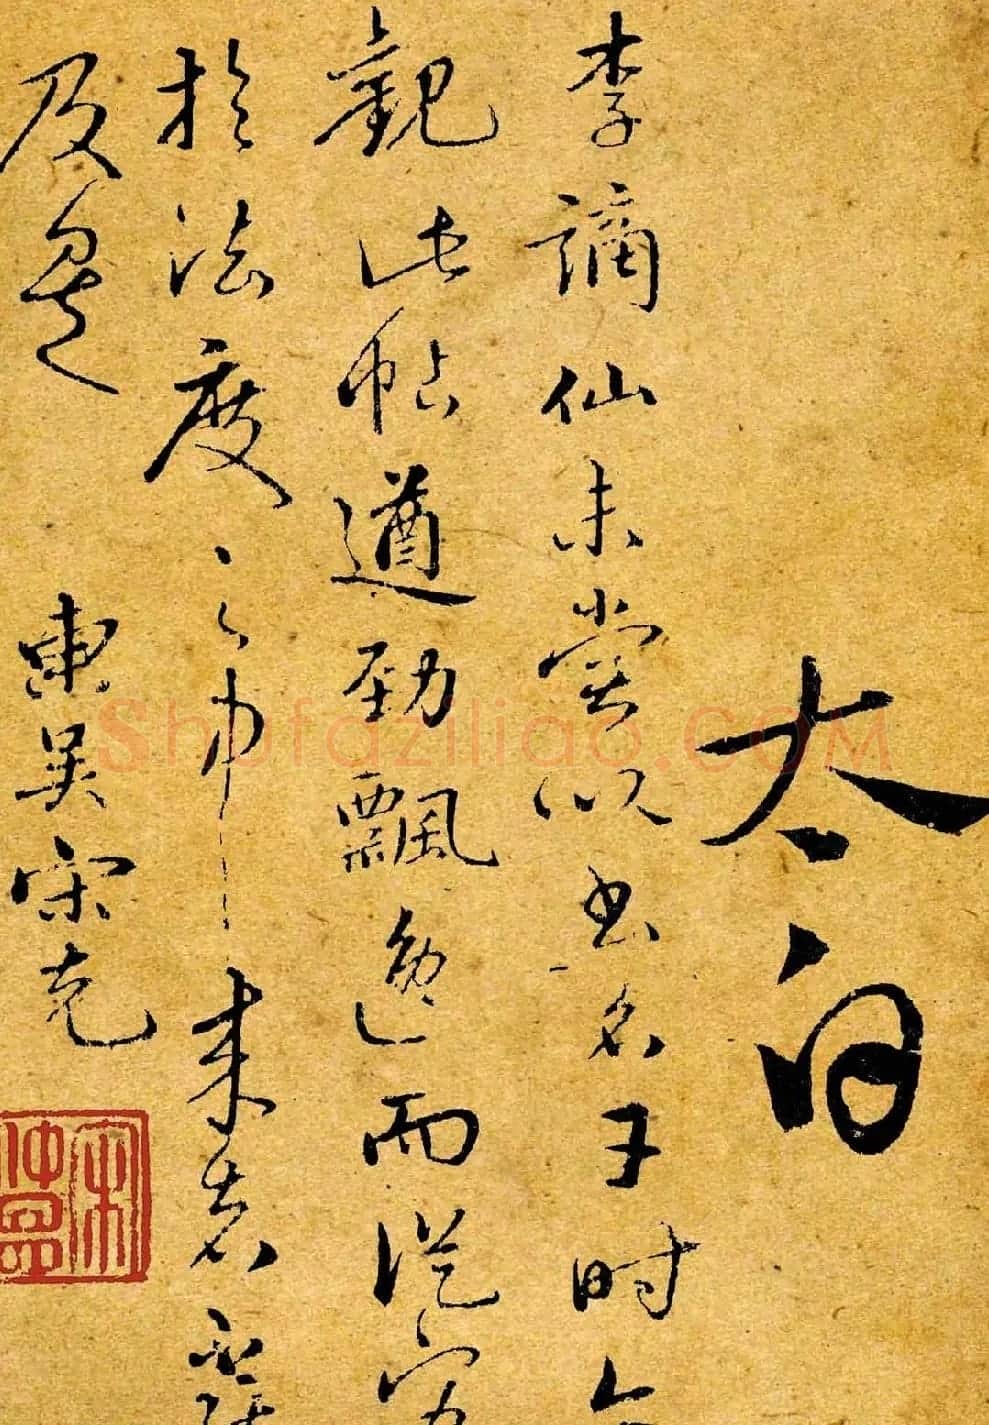 太白
李謫仙未嘗以書名于时今
觀此帖遒勁飄逸而從容
於法度之中来者
及
東吳宋克
宋仲温
Shufaziliao.COM